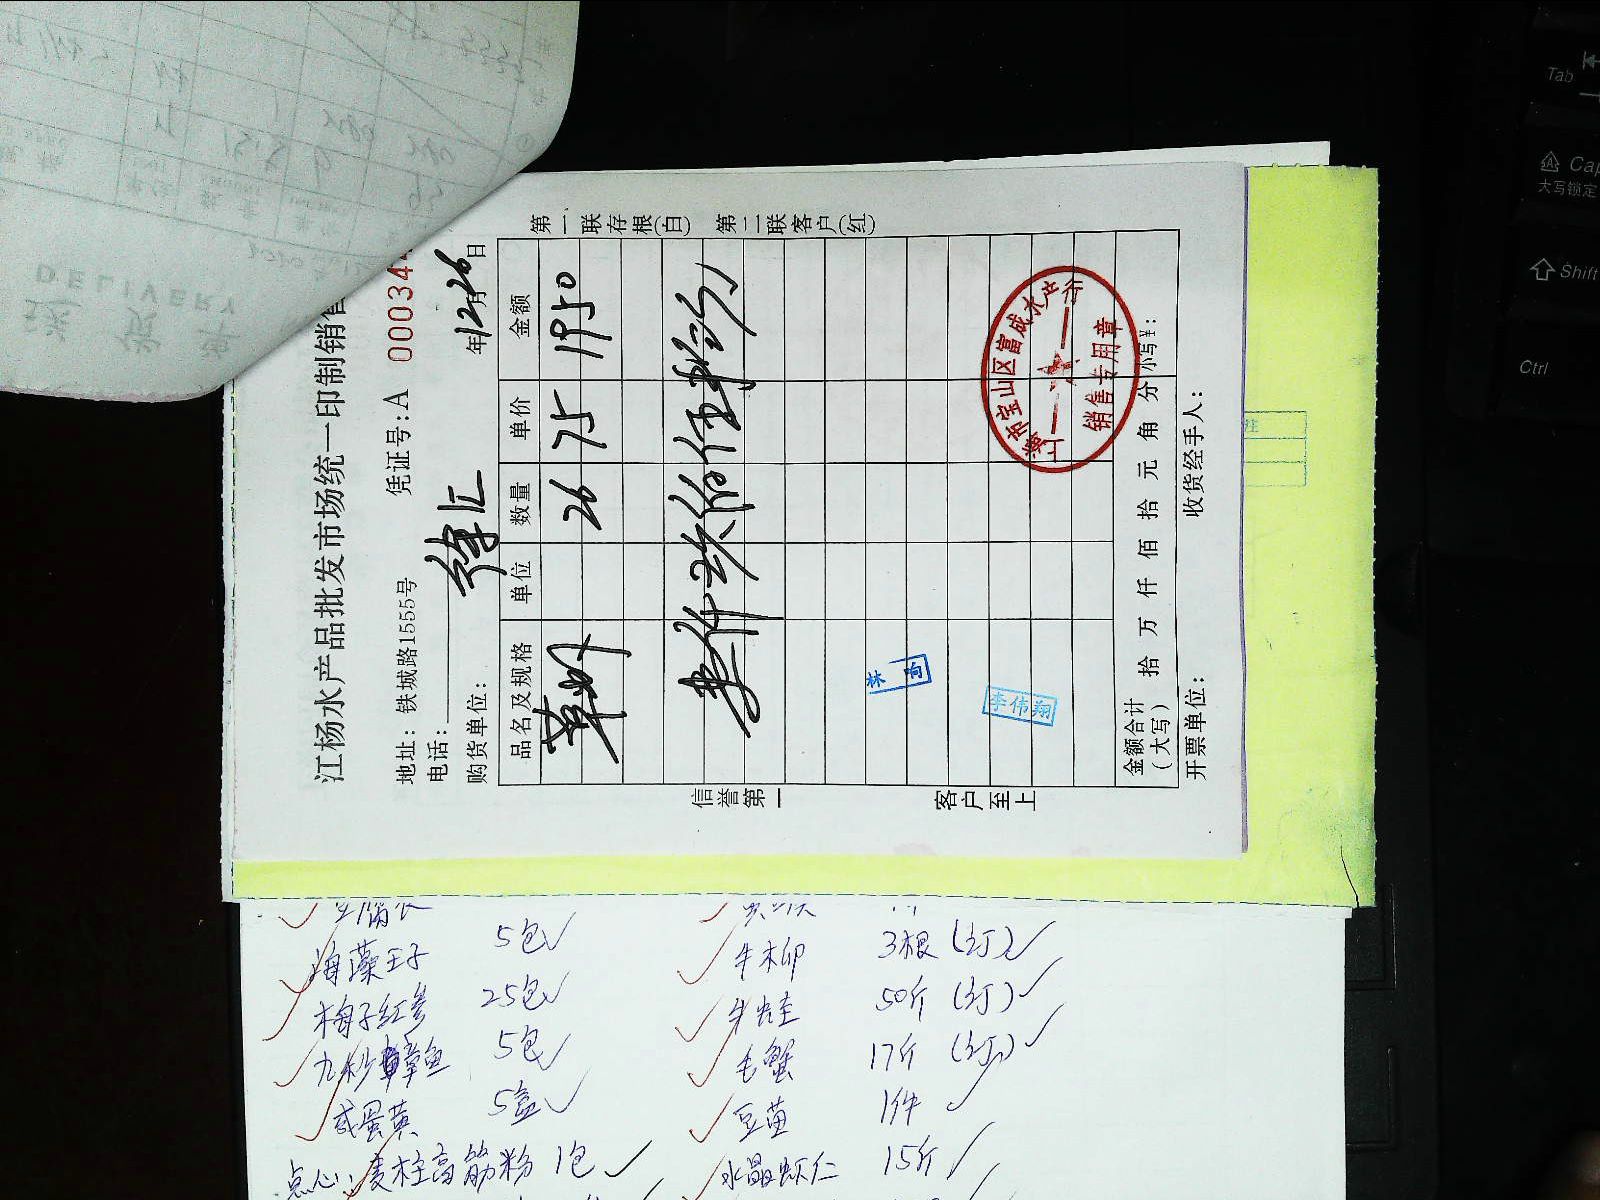 江杨水产品批发市场统一印制销售
凭证号:A 00034
地址: 铁城路1555号
电话:
徐汇
年12月26日
购货单位:
品名及规格 单位 数量 单价 金额
草虾 26 75 1950
第一联存根(白) 第二联客户(红)
信誉第一 客户至上
林
李伟翔
上海市宝山区富成水产行
销售专用章
金额合计(大写) 拾 万 仟 佰 拾 元 角 分 小写¥:
开票单位: 收货经手人:
豆腐衣
海藻王子 5包 牛柳 3根 (订)
梅子红参 25包 牛蛙 50斤 (订)
九秒章鱼 5包 毛蟹 17斤 (订)
咸蛋黄 5盒 豆苗 1件
点心: 麦柱高筋粉 1包 水晶虾仁 15斤
DELIVERY
Tab
Cap
大写锁定
Shift
Ctrl